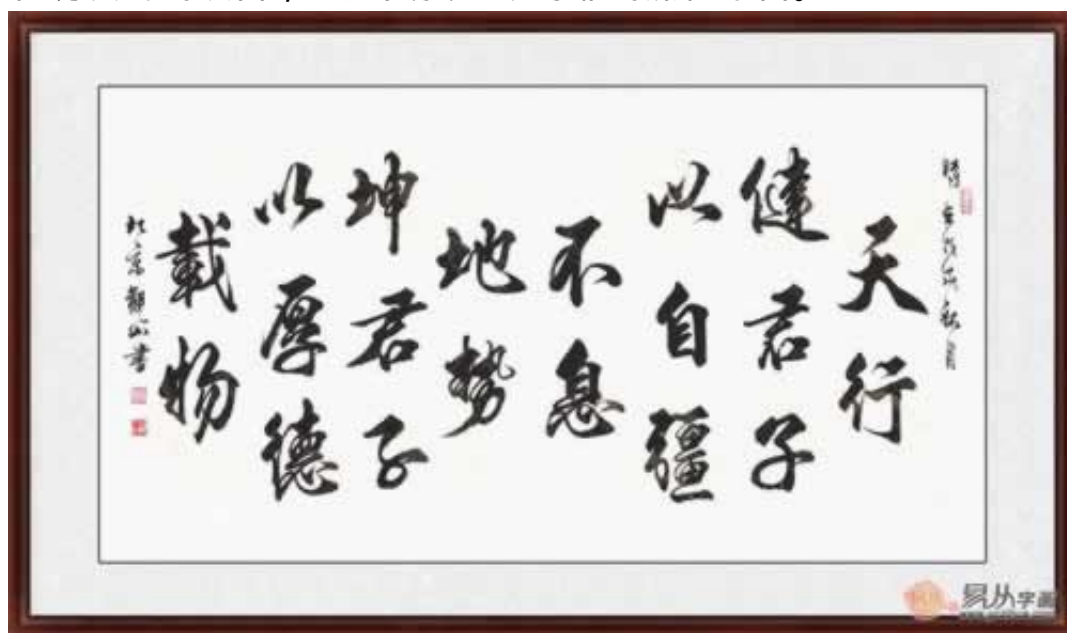 天行
健君子
以自疆
不息
地势
坤君子
以厚德
載物
易从字画